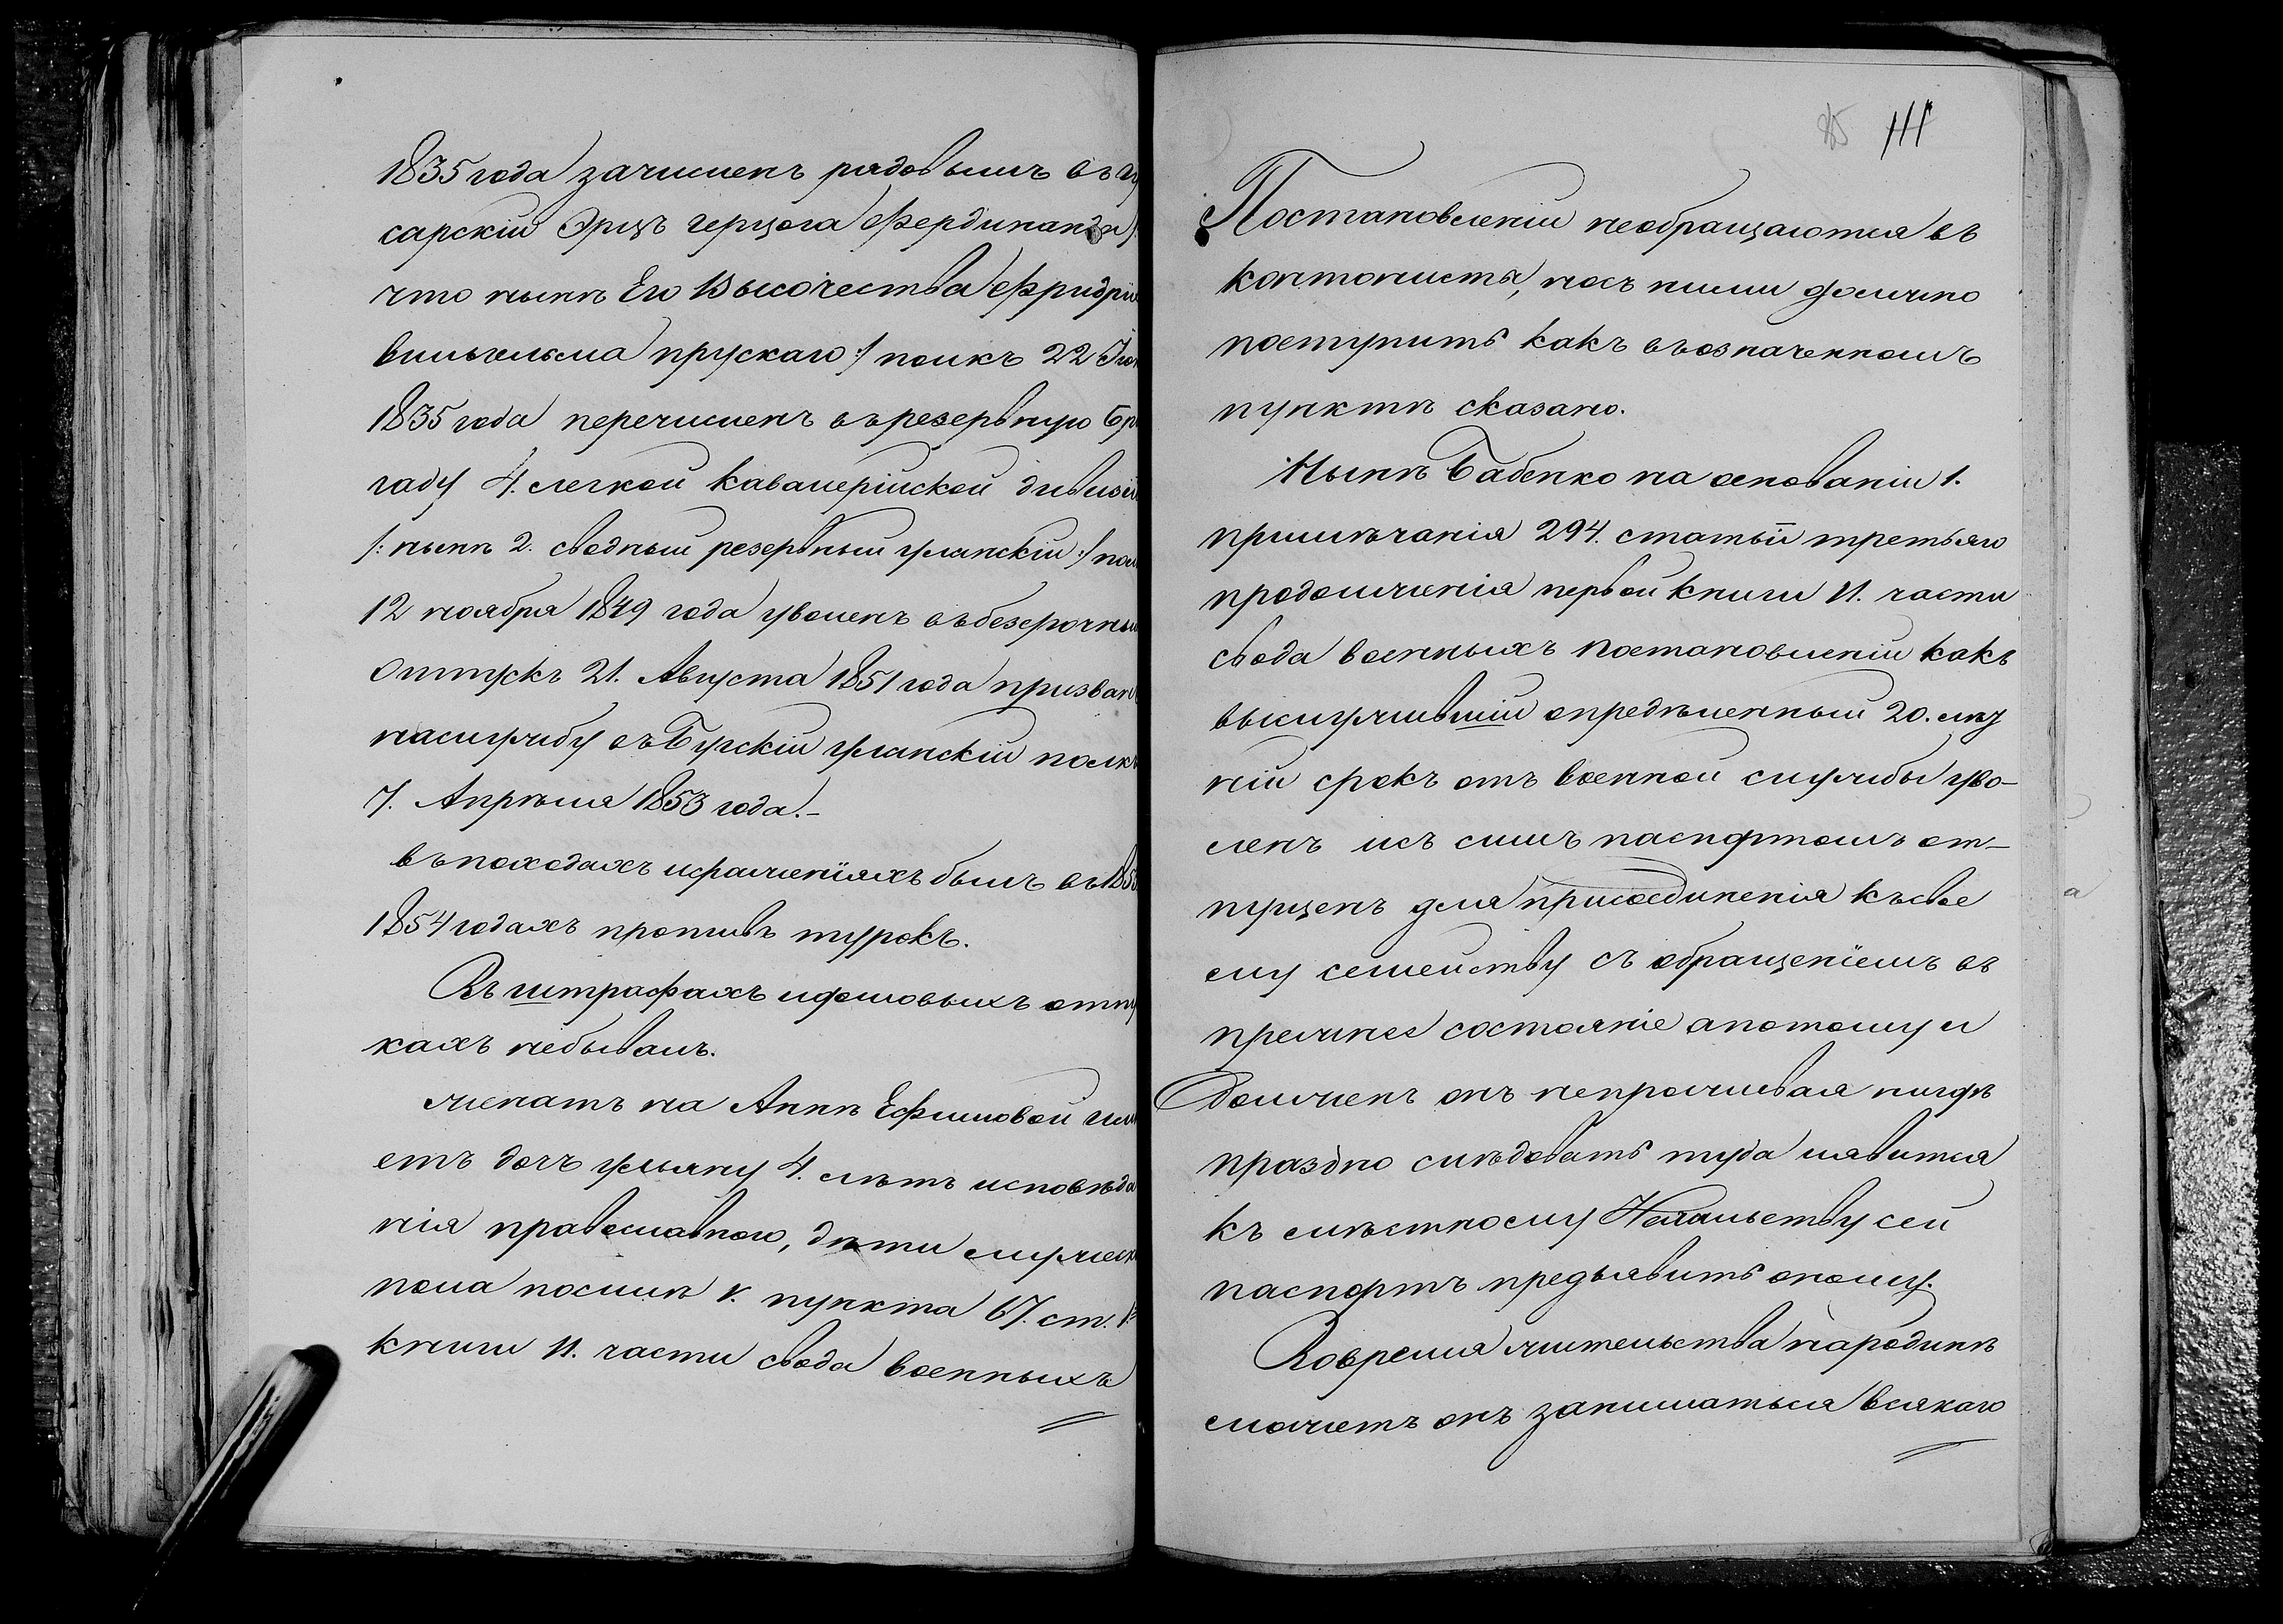 1835 года зачисленъ рядовымъ въ гу
сарскій Эрцъ герцога Фердинанда /:
что нынѣ Его Высочества Фридри
вильгельма прускаго :/ полкъ 22 Iю
1835 года перечисленъ въ резервную Бри
гаду 4. легкой кавалерійской дивизіи
/: нынѣ 2. сводный резервный уланскій :/ пол
12 ноября 1849 года уволенъ въ безсрочный
отпускъ 21. Августа 1851 года призванъ
на службу въ Бугскій уланскій полкъ
7. Апрѣля 1853 года. –
въ походахъ и сраженіяхъ былъ въ 1853
1854 годахъ противъ турокъ.
Въ штрафахъ и домовыхъ отпу
кахъ небывалъ.
женатъ на Аннѣ Ефимовой име
етъ дочь ульяну 4. лѣтъ исповѣда
нія православного, дѣти мужеск
пола посилѣ V. пункта 67. ст. 1й
книги II. части свода военныхъ
85 111
Постановленій необращаются въ
кантонисты, носъ ними должно
поступить какъ въ означенномъ
пунктѣ сказано.
Нынѣ Бабенко на основаніи 1.
примѣчанія 294. статьи третьяго
продолженія первой книги II. части
свода военныхъ постановленій какъ
выслужившій опредѣленный 20. лѣт
ній срокъ отъ военной службы уво–
ленъ исъ симъ паспортомъ от–
пущенъ для присоединенія къ свое
му семейству съ обращеніемъ въ
прежнее состояніе а потому и
Долженъ онъ непроживая нигдѣ
праздно слѣдовать туда иявится
къ мѣстному Началъству сей
паспортъ предъявить оному.
Вовремя жительства народинѣ
можетъ онъ заниматься всякаго